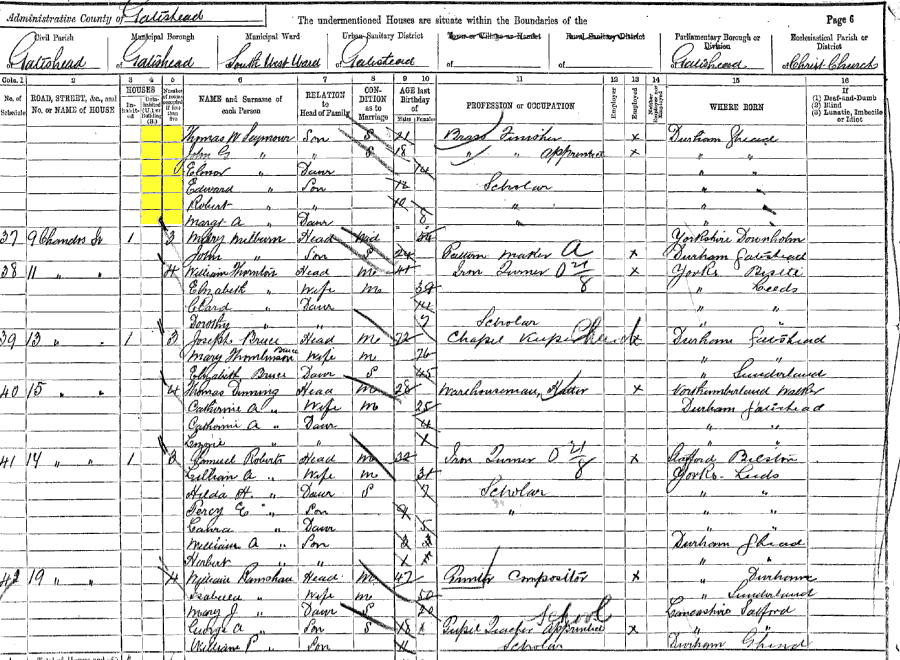 Administrative County of Gateshead The undermentioned Houses are situate within the Boundaries of the Page 6
Civil Parish Municipal Borough Municipal Ward Urban Sanitary District Town or Village or Hamlet Rural Sanitary District Parliamentary Borough or Division Ecclesiastical Parish or District
of Gateshead of Gateshead of South West Ward of Gateshead of of of Gateshead of Christ Church
Cols. 1 2 3 4 5 6 7 8 9 10 11 12 13 14 15 16
No. of Schedule ROAD, STREET, &c., and No. or NAME of HOUSE HOUSES Inhabited Uninhabited (U.), or Building (B.) Number of rooms occupied if less than five NAME and Surname of each Person RELATION to Head of Family CONDITION as to Marriage AGE last Birthday of Males Females PROFESSION or OCCUPATION Employer Employed Neither Employer nor Employed WHERE BORN If (1) Deaf-and-Dumb (2) Blind (3) Lunatic, Imbecile or Idiot
Thomas W Seymour Son S 21 Brass Finisher x Durham
John G " " S 18 " " Apprentice x " "
Elenor " Daur 14 " "
Edward " Son 12 Scholar " "
Robert " " 10 " "
Margt A " Daur 8 " "
37 9 Chandos St 1 3 Mary Milburn Head Wid Yorkshire Downholm
John " Son S 24 Pattern Maker x Durham Gateshead
38 11 " " 4 William Thornton Head M 41 Iron Turner x Yorks
Elizabeth " Wife M 39 " Leeds
Clara " Daur 14 " "
Dorothy " " 7 Scholar " "
39 13 " " 1 3 Joseph Bruce Head M 72 Chapel Keeper x Durham Gateshead
Mary Thomlinson Bruce Wife M 76 " "
Elizabeth Bruce Daur S 45 " Sunderland
40 15 " " 4 Thomas Dinning Head M 28 Warehouseman, x Northumberland Walker
Catherine A " Wife M 25 Durham Gateshead
Catherine A " Daur 4 " "
" " " "
41 17 " " 1 3 Samuel Roberts Head M 32 Iron Turner x Stafford Bilston
Lillian A " Wife M 31 Yorks Leeds
Hilda H. " Daur S 7 Scholar " "
Percy E " Son 9 " " "
Laura " Daur 5 " "
William A " Son 3 Durham Ghead
Herbert " " " "
42 19 " " 4 William Ramshaw Head M 47 Printer Compositor x " Durham
Isabella " Wife M 50 " Sunderland
Mary J " Daur S 20 Lancashire Salford
George A " Son S 18 Pupil Teacher Apprentice School x "
William P " Son 11 Scholar Durham Ghead